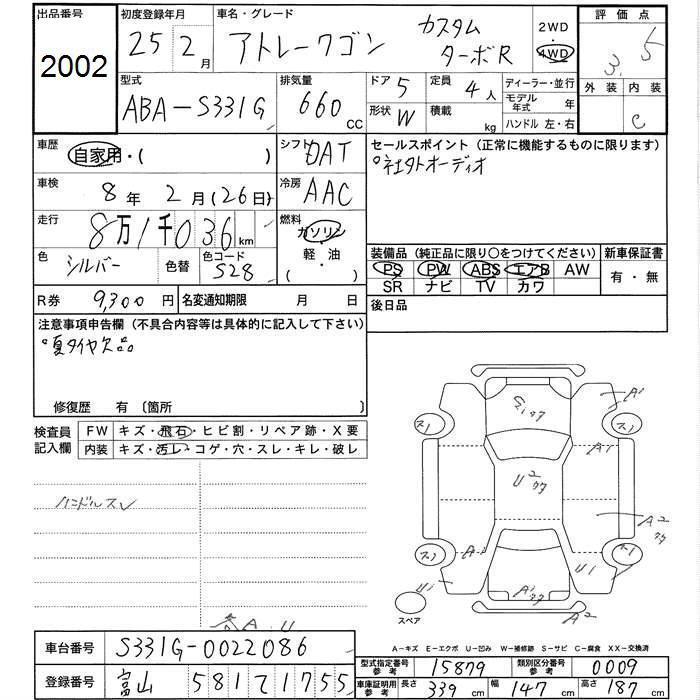 出品番号 初度登録年月 車名・グレード 評価点
2002 25年 2月 アトレーワゴン カスタムターボR 2WD 4WD 3.5
型式 排気量 ドア 5 定員 4人 ディーラー・並行 外装 内装
ABA-S331G 660 CC 形状 W 積載 kg モデル年式 年 C
ハンドル 左・右
車歴 自家用・( ) シフト DAT セールスポイント (正常に機能するものに限ります)
車検 8年 2月(26日) 冷房 AAC °社外オーディオ
走行 8万1千036km 燃料 ガソリン・軽・油 ( )
色 シルバー 色替 色コード S28
装備品 (純正品に限り○をつけてください) 新車保証書
PS PW ABS エアB AW 有・無
SR ナビ TV カワ
R券 9,300円 名変通知期限 月 日 後日品
注意事項申告欄 (不具合内容等は具体的に記入して下さい)
°夏タイヤ欠品
修復歴 有 〔箇所 〕
検査員記入欄 FW キズ・飛石・ヒビ割・リペア跡・X要
内装 キズ・汚レ・コゲ・穴・スレ・キレ・破レ
ハンドルスレ
各A.U
G.ワク
A1
ス1
ス1
A1
U2
ワク
A2
ワク
ス1
A1
U1
ス1
U1
A1
ワク
A2
スペア
A-キズ E-エクボ U-凹み W-補修跡 S-サビ C-腐食 XX-交換済
車台番号 S331G-0022086
型式指定番号 参考 15879 類別区分番号 参考 0009
登録番号 富山 581 セ 1755
車庫証明用 参考 長さ 339cm 幅 147cm 高さ 187cm